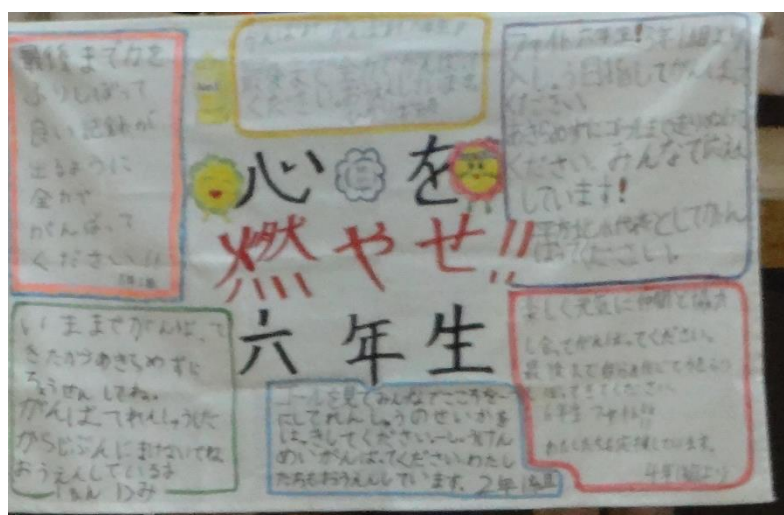 心を
燃やせ!!
六年生
最後まで力を
ふりしぼって
良い記録が
出るように
全力で
がんばって
ください!!
最後まで全力でがんばって
ください。
ファイト六年生!5年1組より
入しょう目指してがんばって
ください
あきらめずにゴールまで走りぬいて
ください。みんなで応えん
しています!
代表としてがん
ばってください。
いままでがんばって
きたからあきらめずに
ちょうせんしてね。
がんばてれんしゅうした
からじぶんにまけないでね
おうえんしているよ
1ねん1くみ
ゴールを見てみんなでこころを一つ
にしてれんしゅうのせいかを
はっきしてくださいいっしょうけん
めいがんばってくださいわたし
たちもおうえんしています。2年1組
楽しく元気に仲間と協力
し合ってがんばってください。
最後まで
ください。
6年生ファイト!!
わたしたちも応援しています。
4年1組より